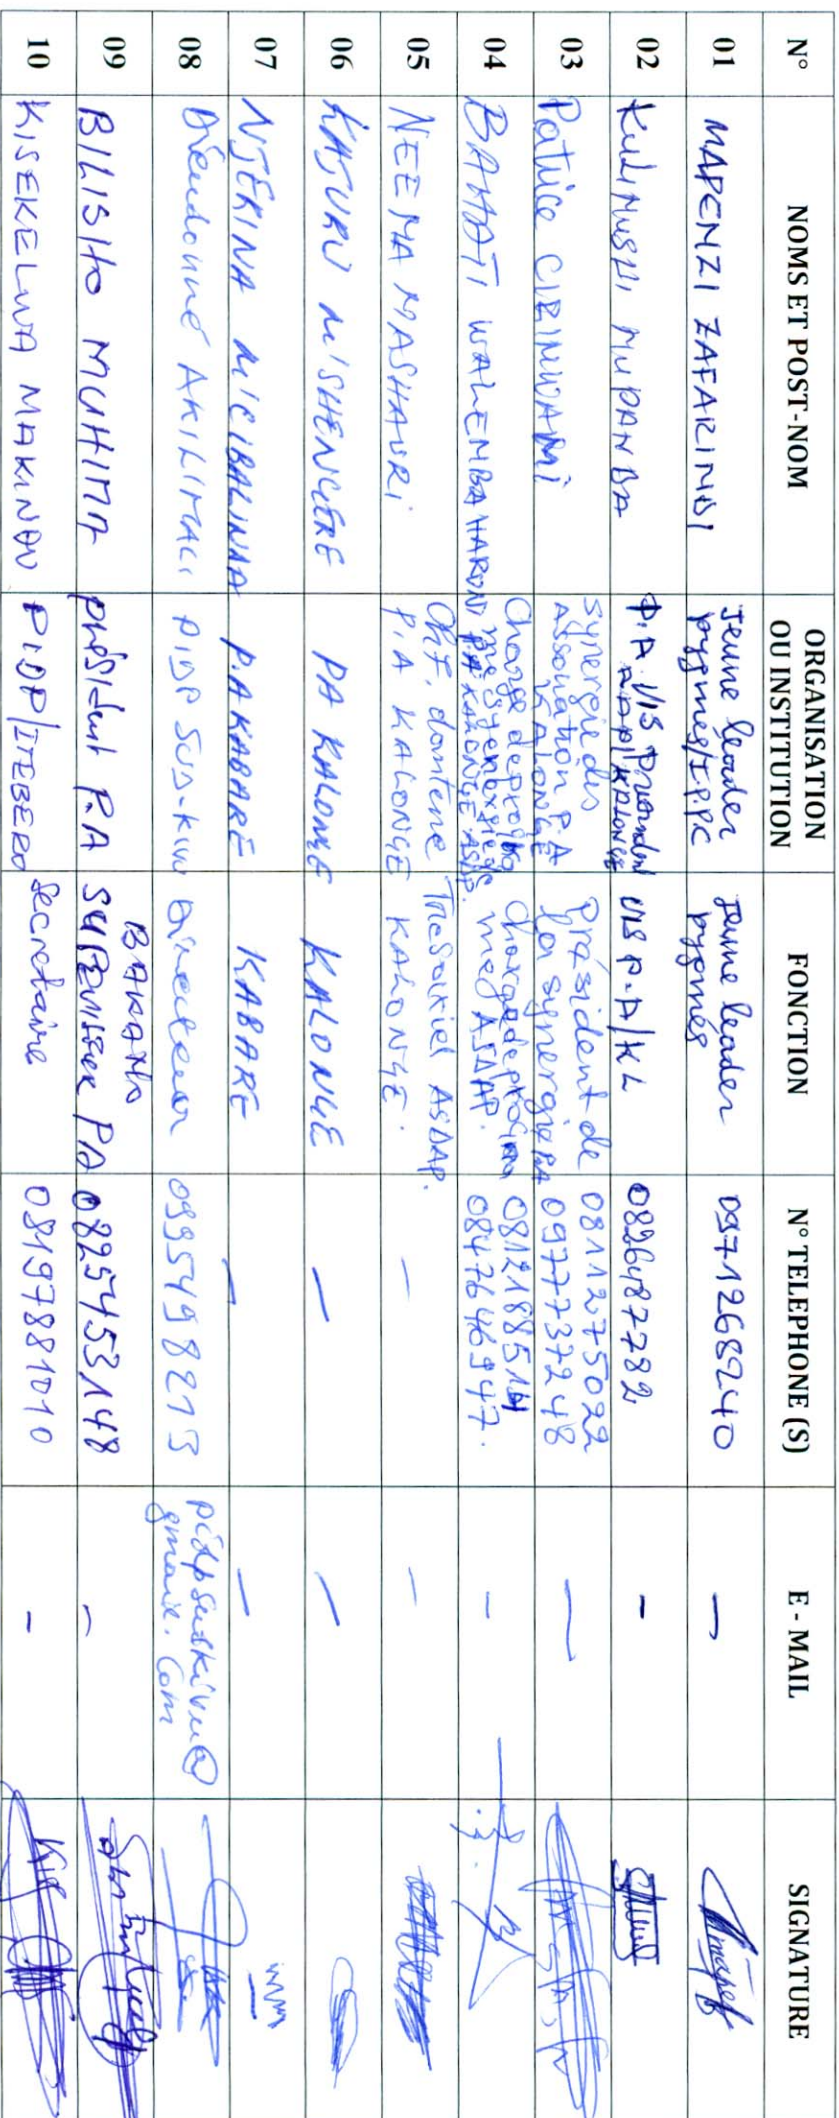 N° NOMS ET POST-NOM ORGANISATION OU INSTITUTION FONCTION N° TELEPHONE (S) E - MAIL SIGNATURE
01 MAPENZI ZAFARINDI Jeune leader pygmés/I.P.PC Jeune leader pygmés 0971268240 —
02 KULIMUSHI MUPANDA P.A V/S President KALONGE V/S P.A/KL 0826487782 -
03 Patrice CIRIMWAMI Synergie des Association P.A KALONGE Président de la synergie PA 0811275022 0977737248 —
04 BAHATI WALEMBA HARONI P.A KALONGE ASDAP. ASDAP. 0847646947. -
05 NEEMA MASHAURI P.A KALONGE ASDAP. KALONGE. — -
06 KAJURU M'SHENGERE PA KALONGE KALONGE — —
07 NJERINA M'CIBALINDA P.A KABARE KABARE — —
08 Dieudonné AKILIMALI PIDP SUD-KIVU Directeur 0995498213 pidpsudkivu@gmail.com
09 BILISHO MUHIMA président P.A SUPERVISEUR PA 0825453148 -
10 KISEKELWA MAKINDU PIDP/ITEBERO Secretaire 08197881010 -